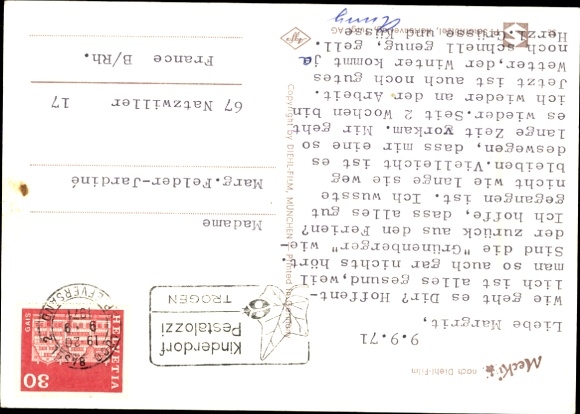 Mecki nach Diehl-Film
9.9.71
Liebe Margrit,
Wie geht es Dir? Hoffent-
lich ist alles gesund, weil
man so auch gar nichts hört.
Sind die "Grünenberger" wie-
der zurück aus den Ferien?
Ich hoffe, dass alles gut
gegangen ist. Ich wusste
nicht wie lange sie weg
bleiben. Vielleicht ist es
deswegen, dass mir eine so
lange Zeit vorkam. Mir geht
es wieder. Seit 2 Wochen bin
ich wieder an der Arbeit.
Jetzt ist auch noch gutes
Wetter, der Winter kommt ja
noch schnell genug, gell.
Herzl. Grüsse und Küsse
Copyright by DIEHL-FILM, MÜNCHEN
Kinderdorf
Pestalozzi
TROGEN
HELVETIA
GAIS
30
BRIEFVERSAND
Madame
Marg. Felder-Jardiné
67 Natzwiller 17
France B/Rh.